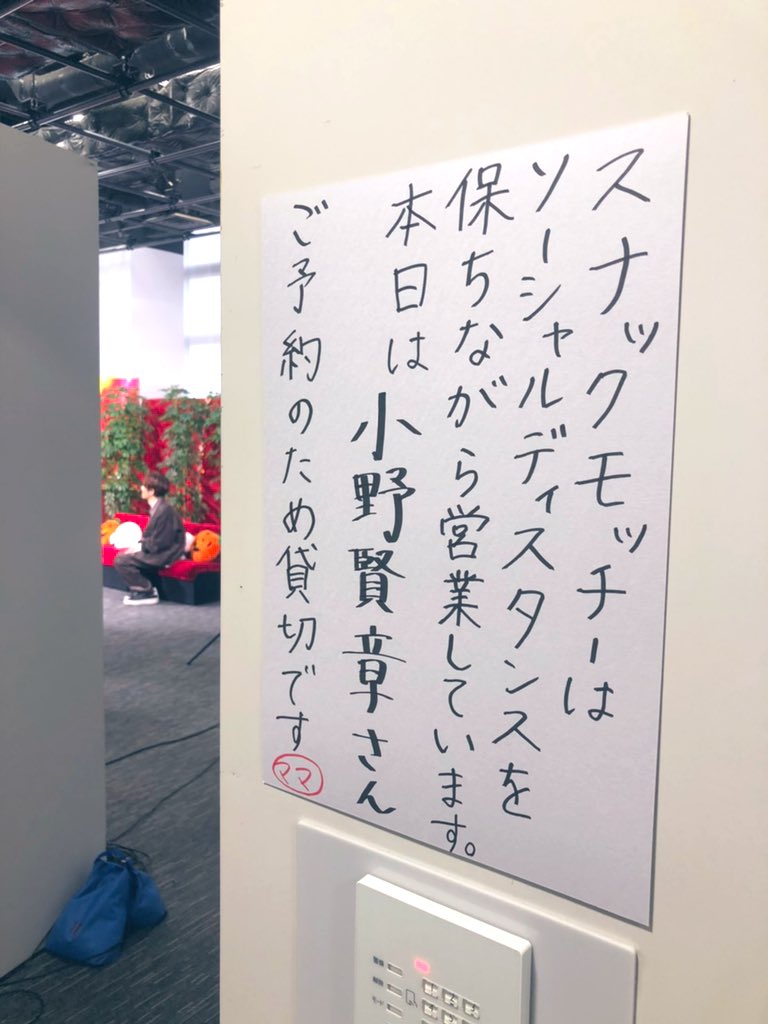 スナックモッチーは
ソーシャルディスタンスを
保ちながら営業しています。
本日は小野賢章さん
ご予約のため貸切です
ママ